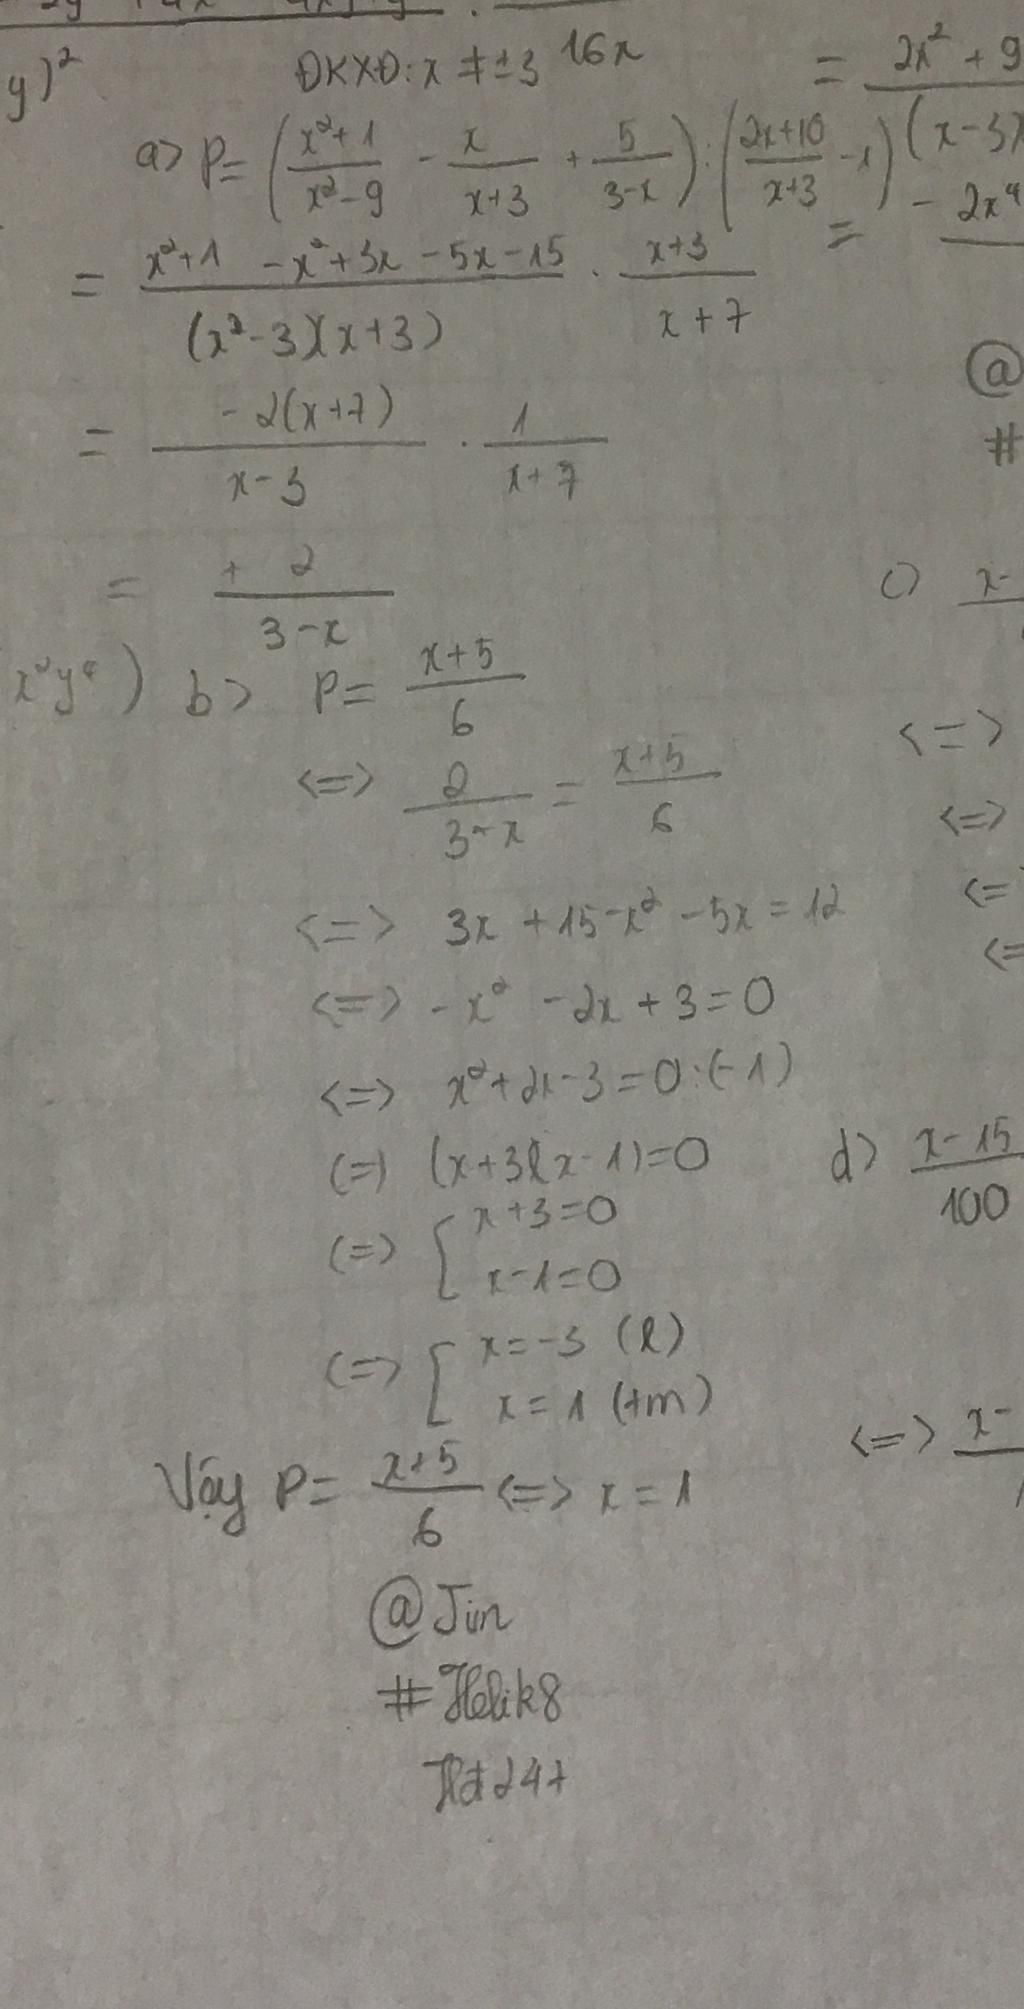 y)²
ĐKXĐ: x ≠ ±3
16x
= 2x² + 9 / (x-3)
a> P = ( x²+1 / x²-9 - x / x+3 + 5 / 3-x ) : ( 2x+10 / x+3 - 1 )
= x²+1 - x²+3x - 5x - 15 / (x²-3)(x+3) . x+3 / x+7
= - 2x⁴
= - 2(x+7) / x-3 . 1 / x+7
@
#
= + 2 / 3-x
x²y⁴ )
b> P = x+5 / 6
<=> 2 / 3-x = x+5 / 6
<=> 3x + 15 - x² - 5x = 12
<=> - x² - 2x + 3 = 0
<=> x² + 2x - 3 = 0 : (-1)
(=) (x+3)(x-1) = 0
(=> [ x+3 = 0
x-1 = 0
(=> [ x = -3 (l)
x = 1 (tm)
Vậy P = x+5 / 6 <=> x = 1
@Jin
#Helik8
c) x-
<=>
<=>
<=
<=
d> x-15 / 100
<=> x-